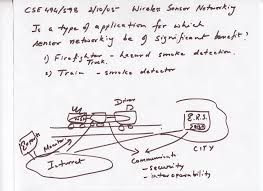 CSE 494/598 2/10/05 Wireless Sensor Networking
Is a type of application for which
sensor networking be of significant benefit?
1) Firefighter - hazard smoke detection
Truck.
2) Train - smoke detector
Driver
CITY
Monitor
Internet
Communicate
- security
- interoperability